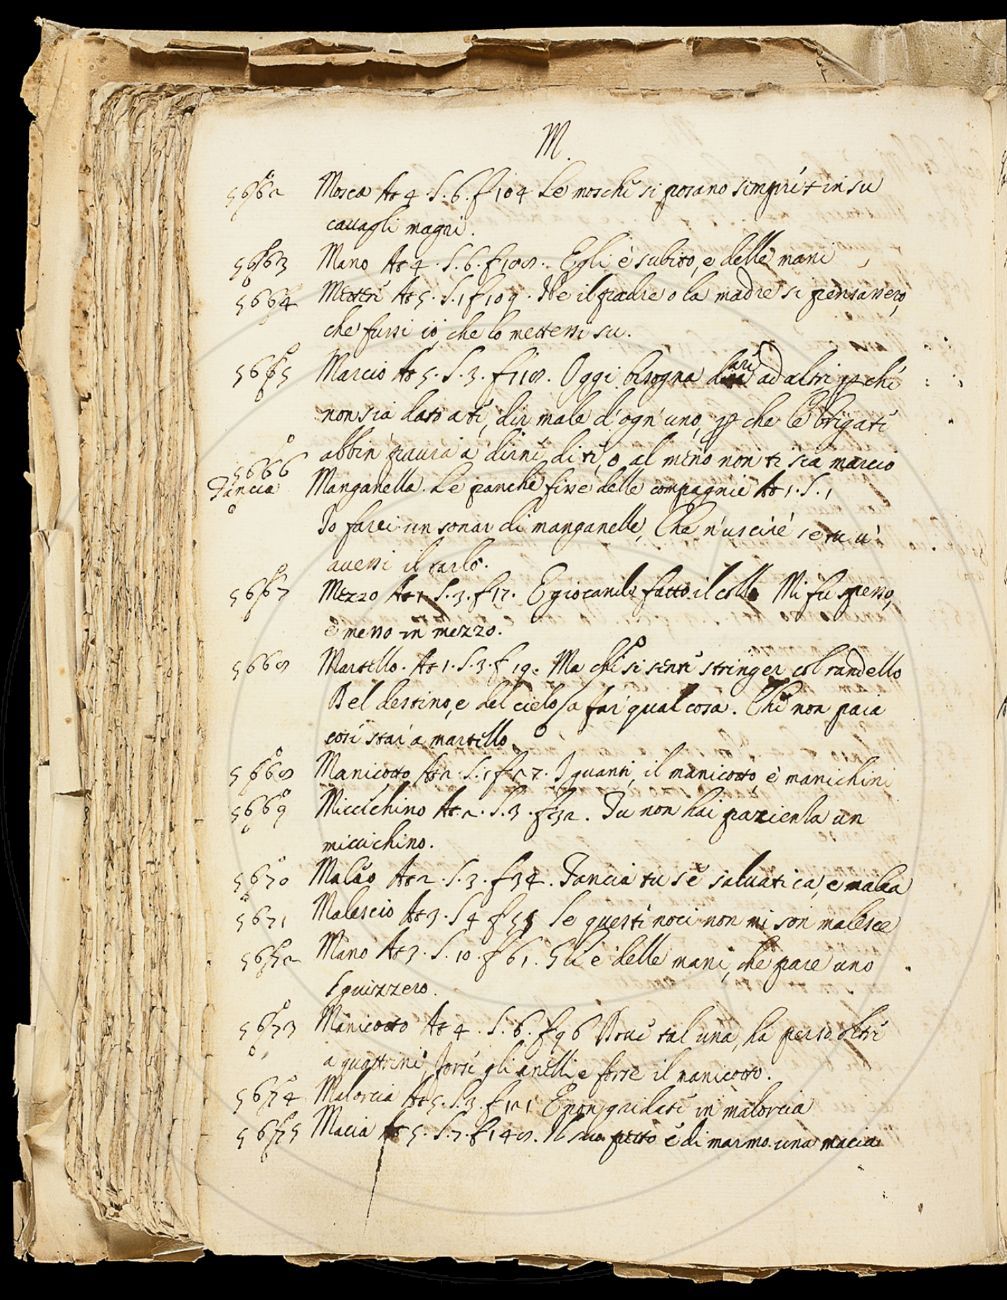 M.
5662 Mosca At 4. S. 6. f 104 Le moschi si posano sempri in su
cauagli magri.
5663 Mano At 4. S. 6. f 108. Egli è subito, e delle mani
5664 Mettri At 5. S. 1 f 109. Ne il padre o la madre si pensassero,
che fussi io, che lo mettessi su.
5665 Marcio At 5. S. 3. f 118. Oggi bisogna dari ad altri chi
non sia dato a ti, dir male d'ogn'uno, che le brigati
abbin paura a dirni di ti, o al mino non ti sia marcio
5666
Tancia Manganella. Le panche fisse delle compagnie At 1. S. 1
Io farei un sonar di manganelle, Che n'uscire se tu u'
auessi il tarlo.
5667 Mezzo At 1. S. 3. f 17. E giocando fatto il collo Mi fu spesso,
è messo in mezzo.
5668 Martello. At 1. S. 3. f 19. Ma chi si senti stringer col randello
Del destino, e del cielo a far qual cosa. Chi non paia
così stai a martillo
5668 Manicotto At 2. S. 1 f 27. I guanti, il manicotto è manichini
5669 Miccichino At 2. S. 3. f 32. Tu non hai pazienza un
micicchino.
5670 Malão At 2. S. 3. f 34. Tancia tu s'è saluatica, e
5671 Malescio At 3. S 4 f 55 Se questi noci non mi son malesce
5672 Mano At 3. S. 10. f 61. Gli è delle mani, che pare uno
Squizzero.
5673 Manicotto At 4. S. 6. f 96 tal una, ha perso oltri
a quattrini, forsi gli anelli e forse il manicotto.
5674 Malorcia At 5. S. 3. f 121 E non gridati in malorcia
5675 Macia At 5. S. 7. f 148. Il suo petto è di marmo una macia